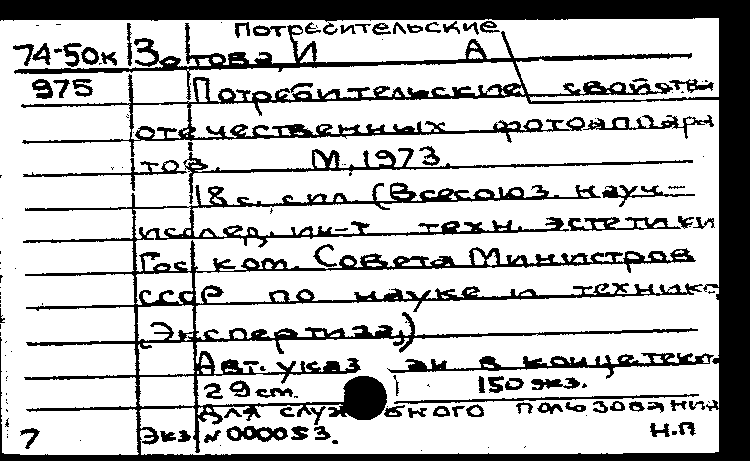 Потребительские
74-50к Зотова, И А
975 Потребительские свойства
отечественных фотоаппара
тов. М, 1973.
18 с. с ил. (Всесоюз. науч.-
исслед. ин-т техн. эстетики
Гос. ком. Совета Министров
СССР по науке и технике
"Экспертиза")
Авт. указ ан в конце текст.
29 cm. 150 экз.
Для служебного пользования
7 Экз. № 000053. Н.П